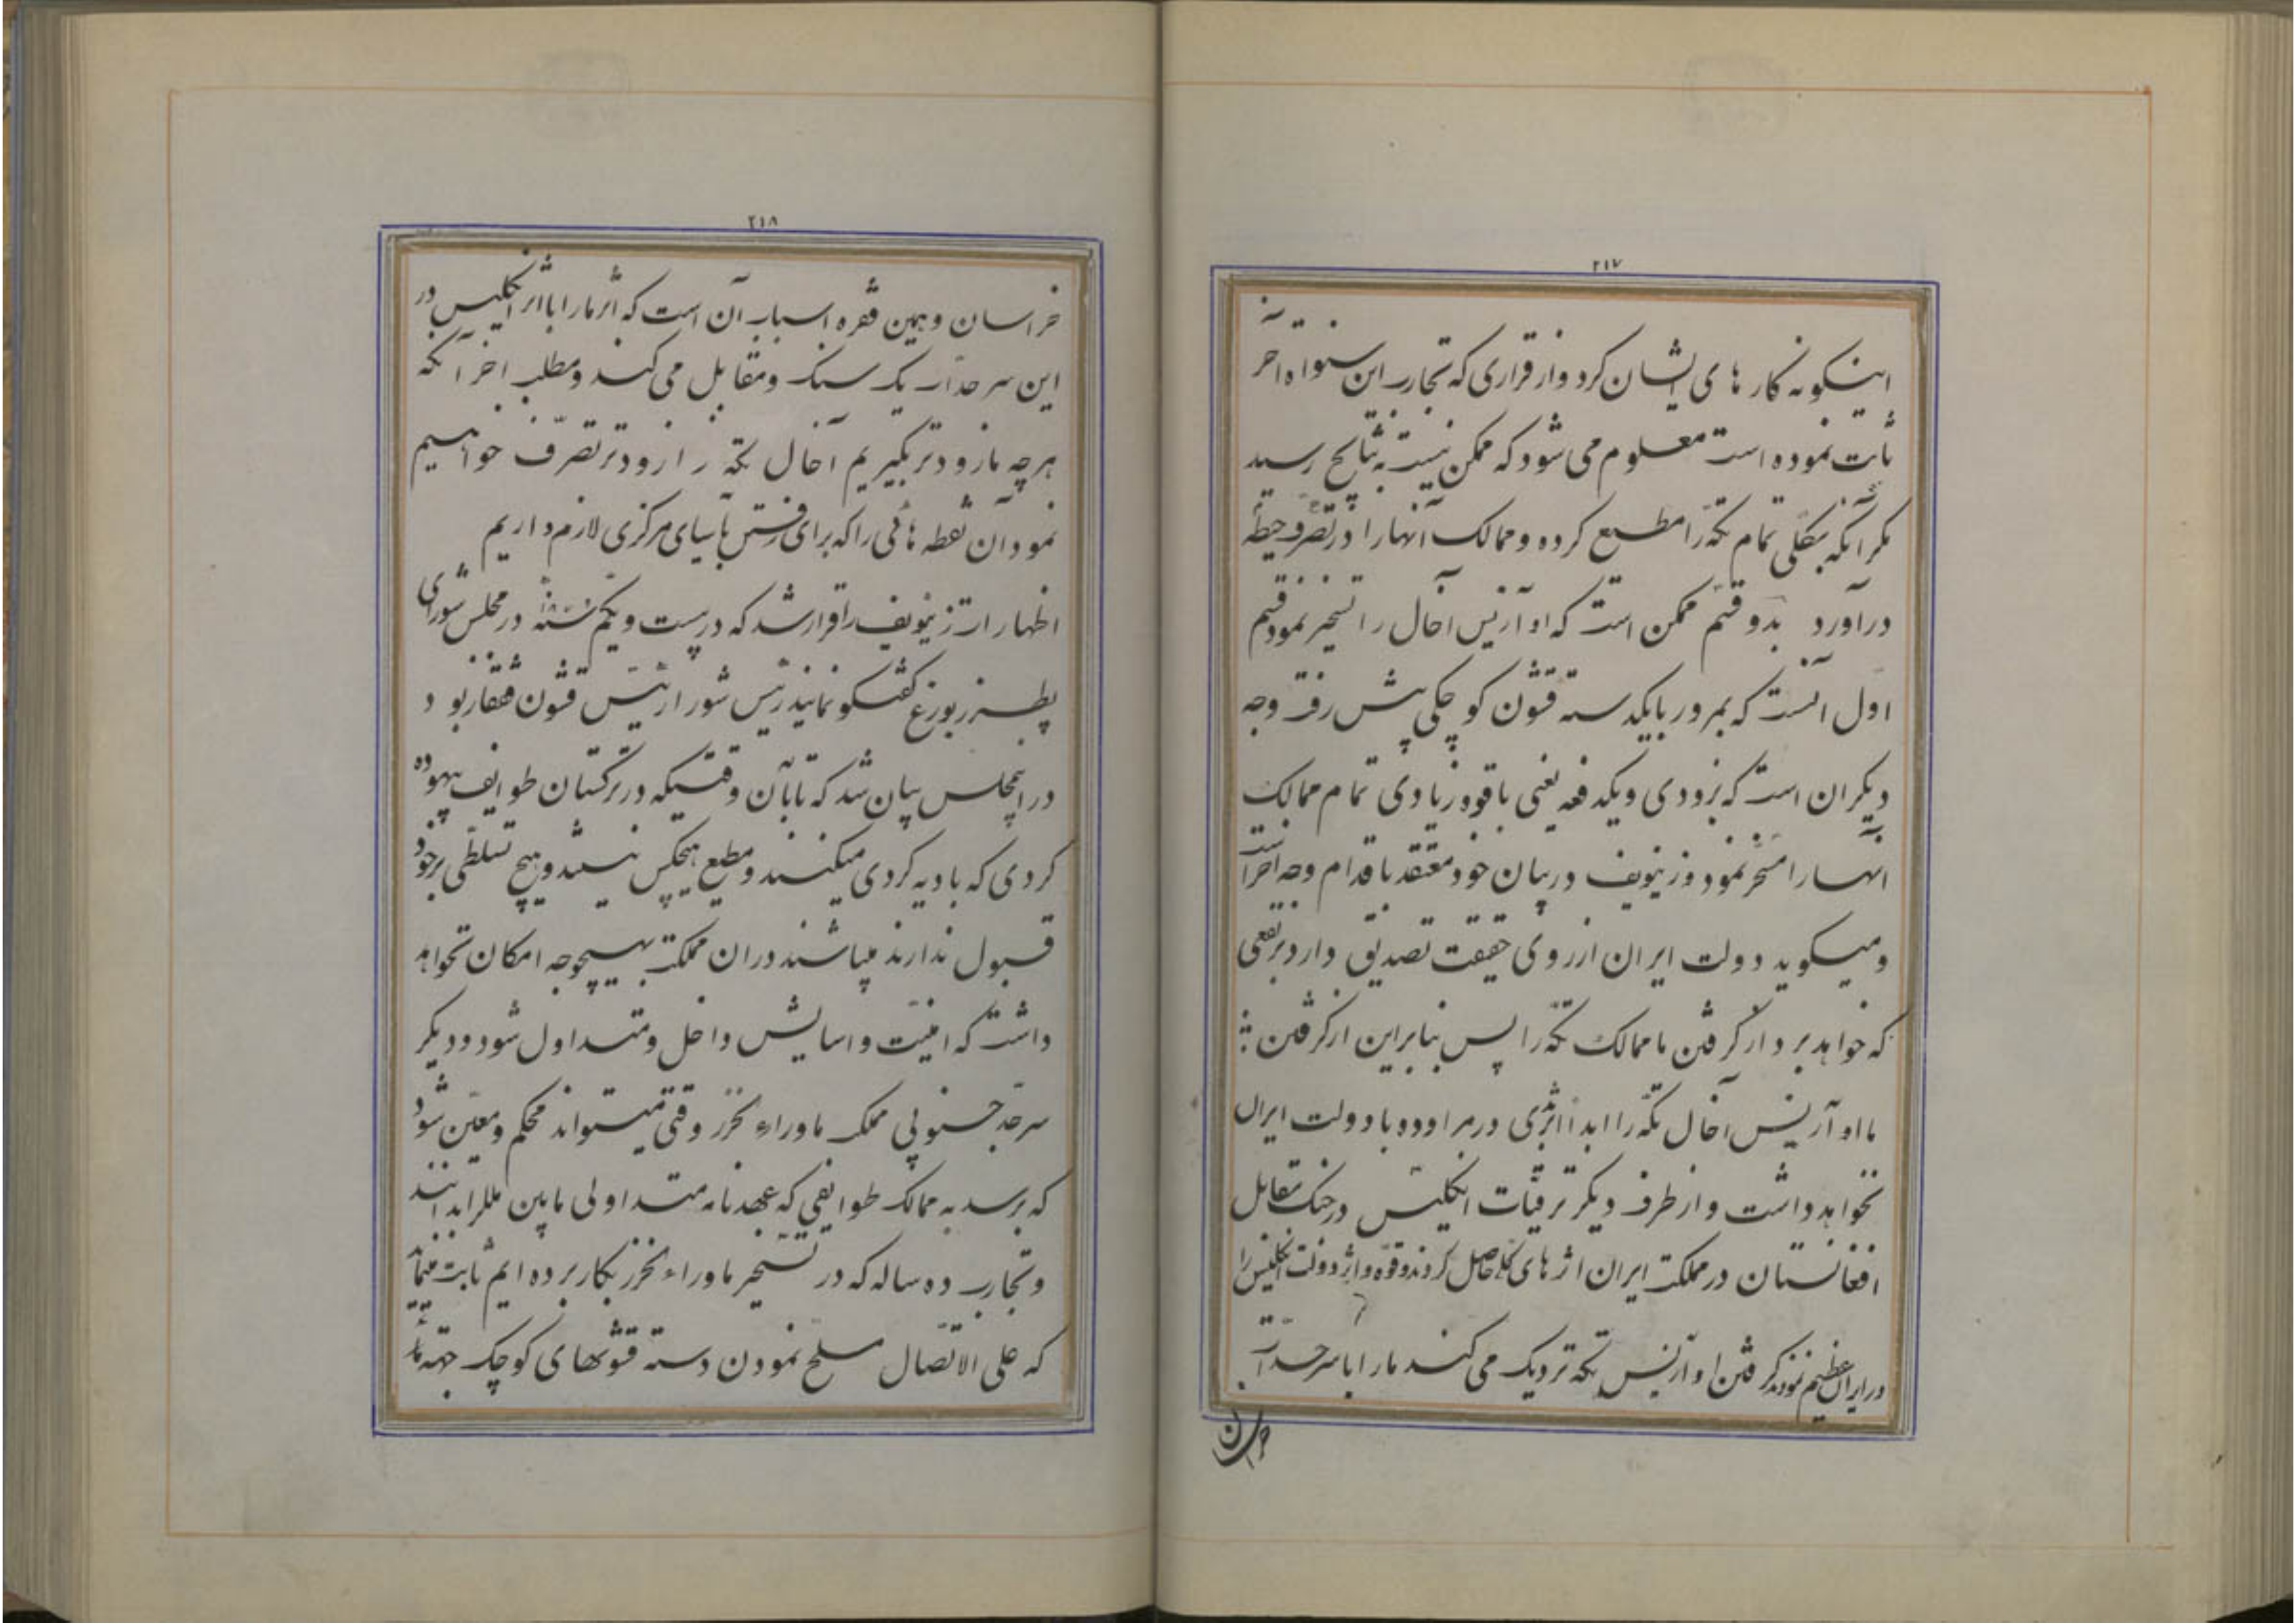 ۲۱۷
اینکونه کارهای ایشان کرد و از قراری که تجارب این سنواة آخر
ثابت نموده است معلوم می شود که ممکن نیست به نتایج رسید
مکر آنکه بکلی تمام تکه را مطیع کرده و ممالک آنها را در تصرف و حیطه
درآورد بدو قسم ممکن است که او آزیس آخال را تسخیر نمود قسم
اول آنست که بمرور با یکدسته قشون کوچکی پیش رفت وجه
دیکر ان است که بزودی و یکدفعه یعنی با قوه زیادی تمام ممالک
انها را مسخر نمود و زینویف در بیان خود معتقد باقدام وجه آخر است
و میکوید دولت ایران از روی حقیقت تصدیق دارد بر نفعی
که خواهد برد از کرفتن ما ممالک تکه را پس بنابراین از کرفتن
ما او آزیس آخال تکه را ابدا اثری در مراوده با دولت ایران
نخواهد داشت و از طرف دیکر ترقیات انکلیس در جنک مقابل
افغانستان در مملکت ایران اثرهای کلی حاصل کردند و قوه و اثر دولت انکلیس را
در ایران عظیم نمودند کرفتن او آزیس تکه نزدیک می کند ما را با سرحدات
خراسان
۲۱۸
خراسان و همین فقره اسباب آن است که اثر ما را با اثر انکلیس در
این سرحدات یک سنک و مقابل می کند و مطلب اخر آنکه
هرچه ما زودتر بکیریم آخال تکه را زودتر تصرف خواهیم
نمود آن نقطه هائی را که برای رفتن بآسیای مرکزی لازم داریم
اظهارات زینویف را قرار شد که در بیست و یکم در مجلس شورای
پطرزبورغ کفتکو نمایند رئیس شورا رئیس قشون قفقاز بود
در آنمجلس بیان شد که تا بآن وقتیکه در ترکستان طوایف بیهوده
کردی که بادیه کردی میکنند و مطیع هیچکس نیستند و هیچ تسلطی بر خود
قبول ندارند میباشند در ان مملکت بهیچوجه امکان نخواهد
داشت که امنیت و اسایش داخل و متداول شود و دیکر
سرحد جنوبی مملک ماوراء بحر خزر وقتی میتواند محکم و معین شود
که برسد به ممالک طوایفی که عهدنامه متداولی مابین ملل را بدانند
و تجارب ده ساله که در تسخیر ماوراء بحر خزر بکار برده ایم ثابت مینماید
که علی الاتصال مسلح نمودن دسته قشونهای کوچک جهة